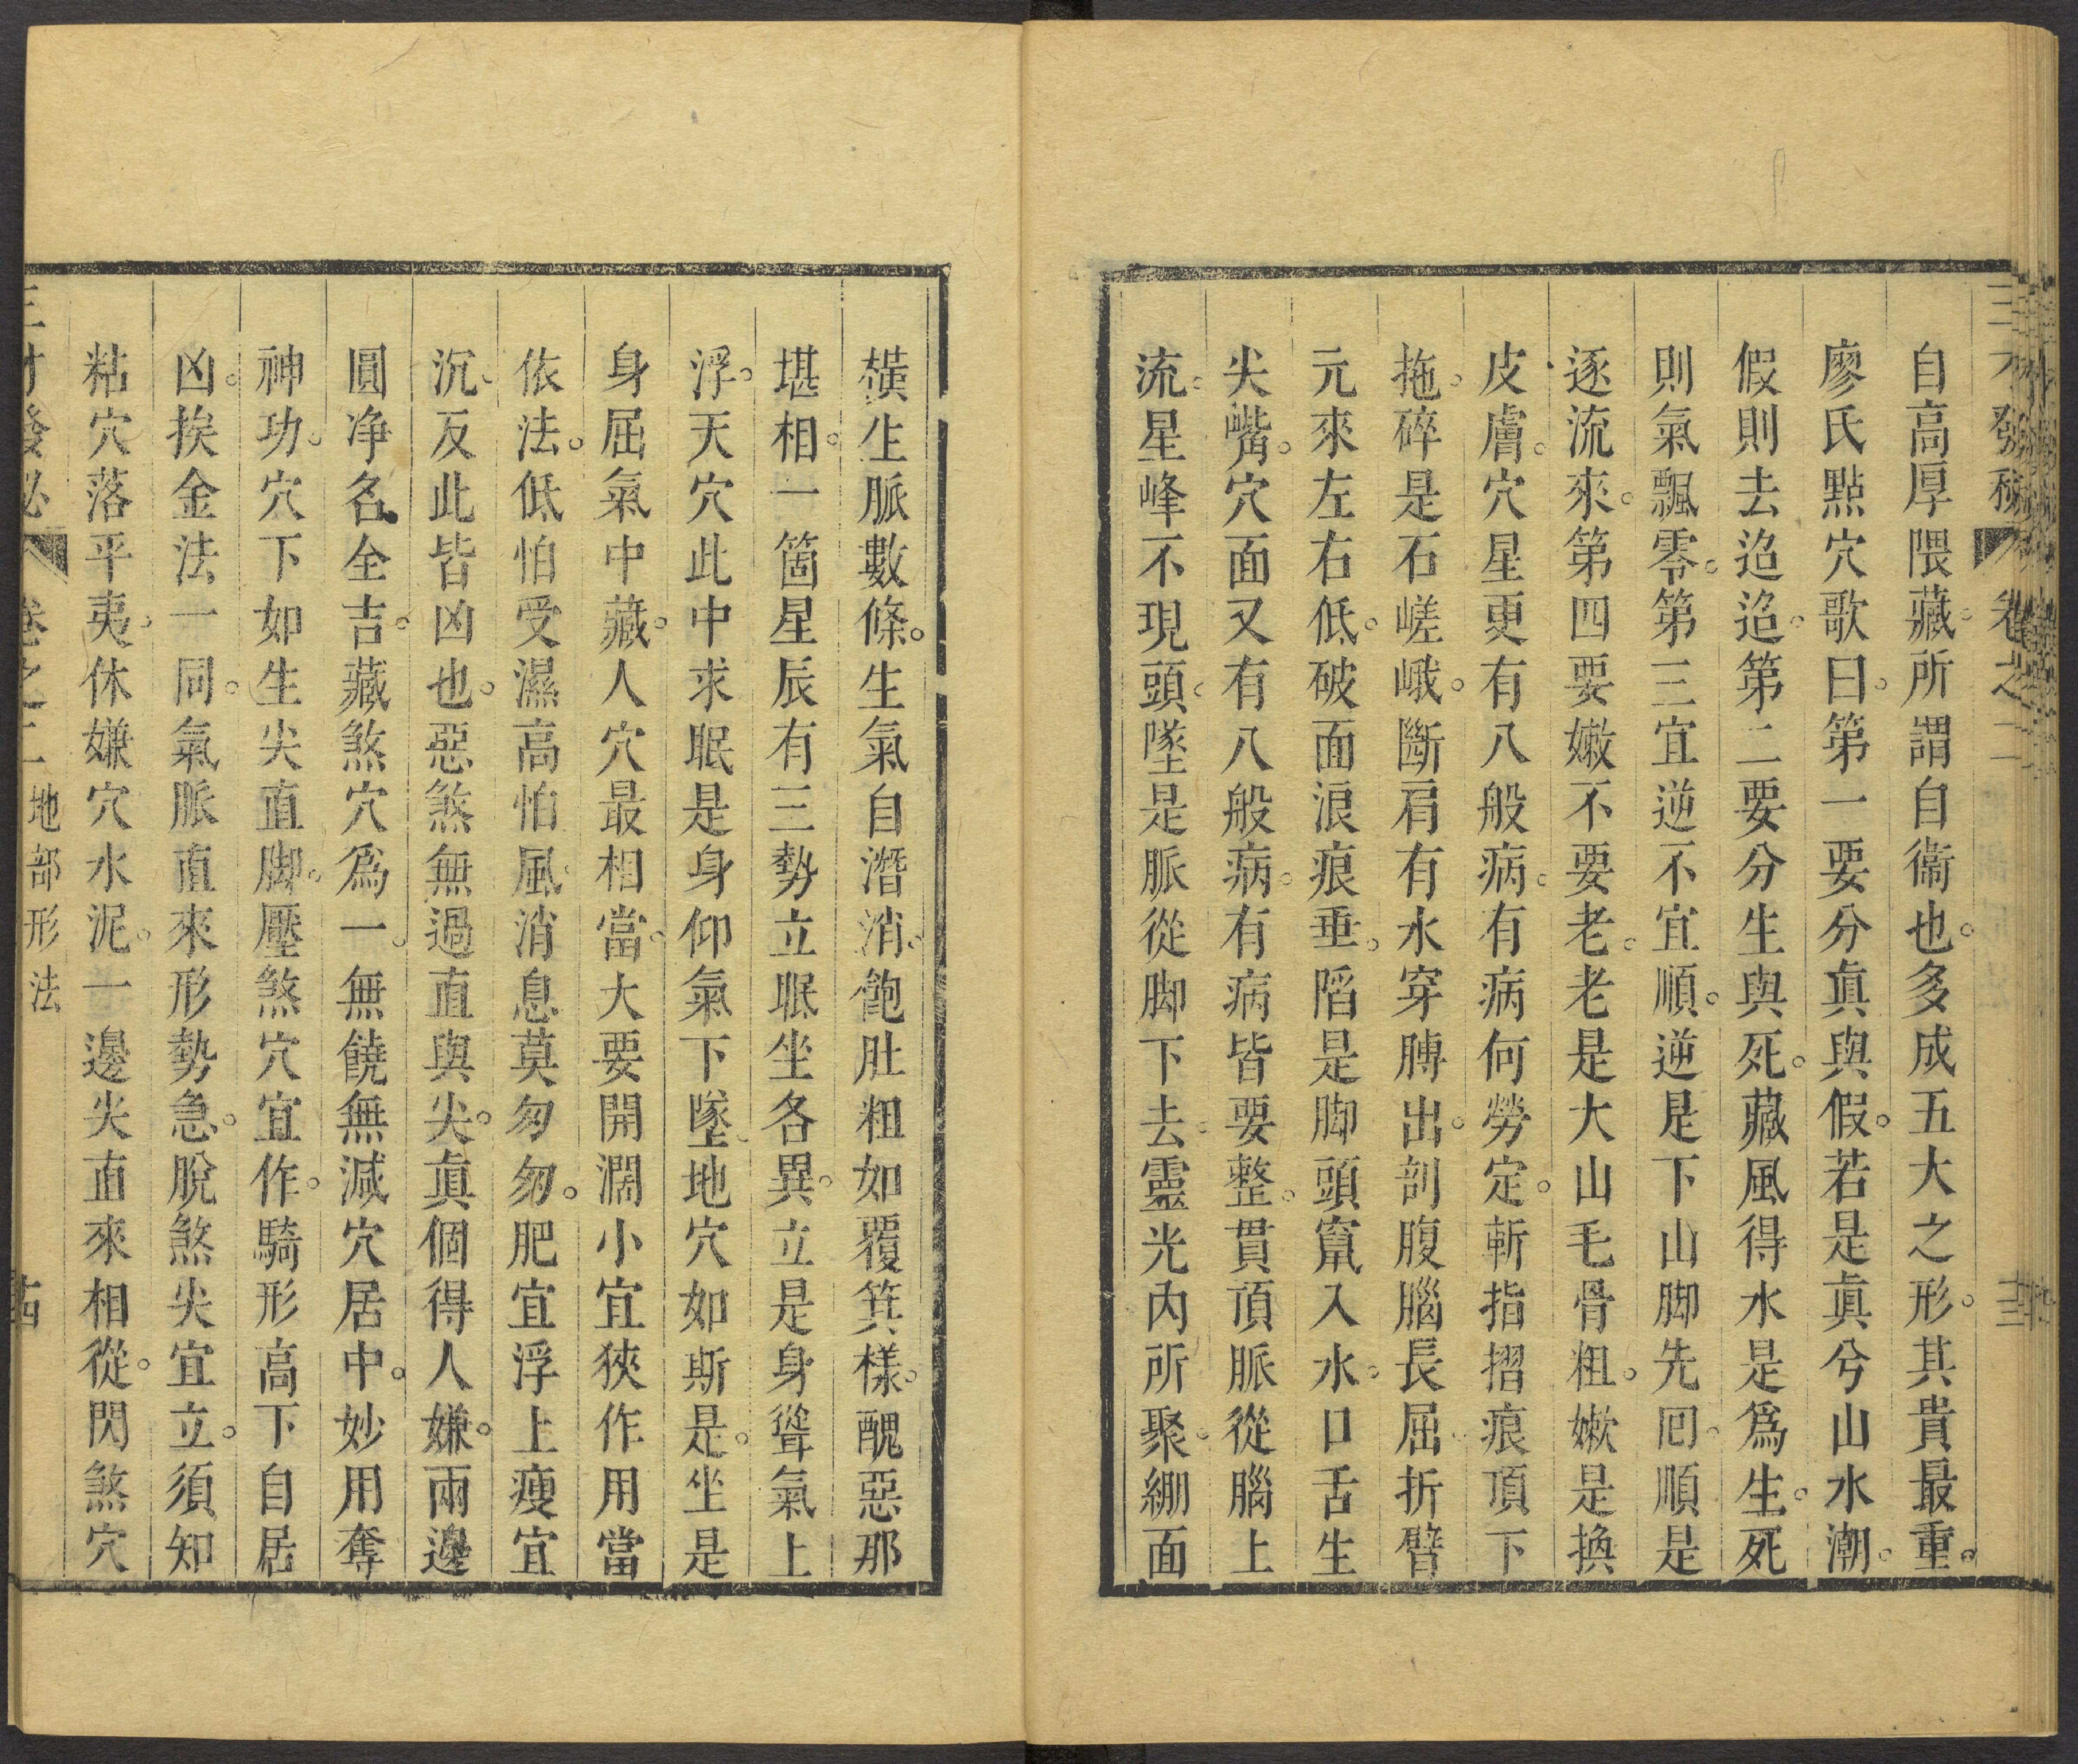 三才發秘 卷之二 十三
自高厚隈藏。所謂自衞也。多成五大之形。其貴最重。
廖氏點穴歌曰。第一要分眞與假。若是眞兮山水潮。
假則去迢迢。第二要分生與死。藏風得水是爲生。死
則氣飄零。第三宜逆不宜順。逆是下山脚先囘。順是
逐流來。第四要嫩不要老。老是大山毛骨粗。嫩是換
皮膚。穴星更有八般病。有病何勞定。斬指摺痕頂下
拖。碎是石嵯峨。斷肩有水穿膊出。剖腹腦長屈。折臂
元來左右低。破面浪痕垂。陷是脚頭竄入水。口舌生
尖嘴。穴面又有八般病。有病皆要整。貫頂脈從腦上
流。星峰不現頭。墜是脈從脚下去。靈光內所聚。綳面
橫生脈數條。生氣自潛消。飽肚粗如覆箕樣。醜惡那
堪相。一箇星辰有三勢立眠坐各異。立是身聳氣上
浮。天穴此中求眠是身仰氣下墜。地穴如斯是。坐是
身屈氣中藏。人穴最相當。大要開濶小宜狹作用當
依法。低怕受濕高怕風。消息莫匆匆。肥宜浮上瘦宜
沉。反此皆凶也。惡煞無過直與尖。眞個得人嫌。兩邊
圓净名全吉。藏煞穴爲一。無饒無減穴居中。妙用奪
神功。穴下如生尖直脚。壓煞穴宜作。騎形高下自居
凶。挨金法一同。氣脈直來形勢急。脫煞尖宜立。須知
粘穴落平夷。休嫌穴水泥。一邊尖直來相從。閃煞穴
三才發秘 卷之二 地部形法 十四